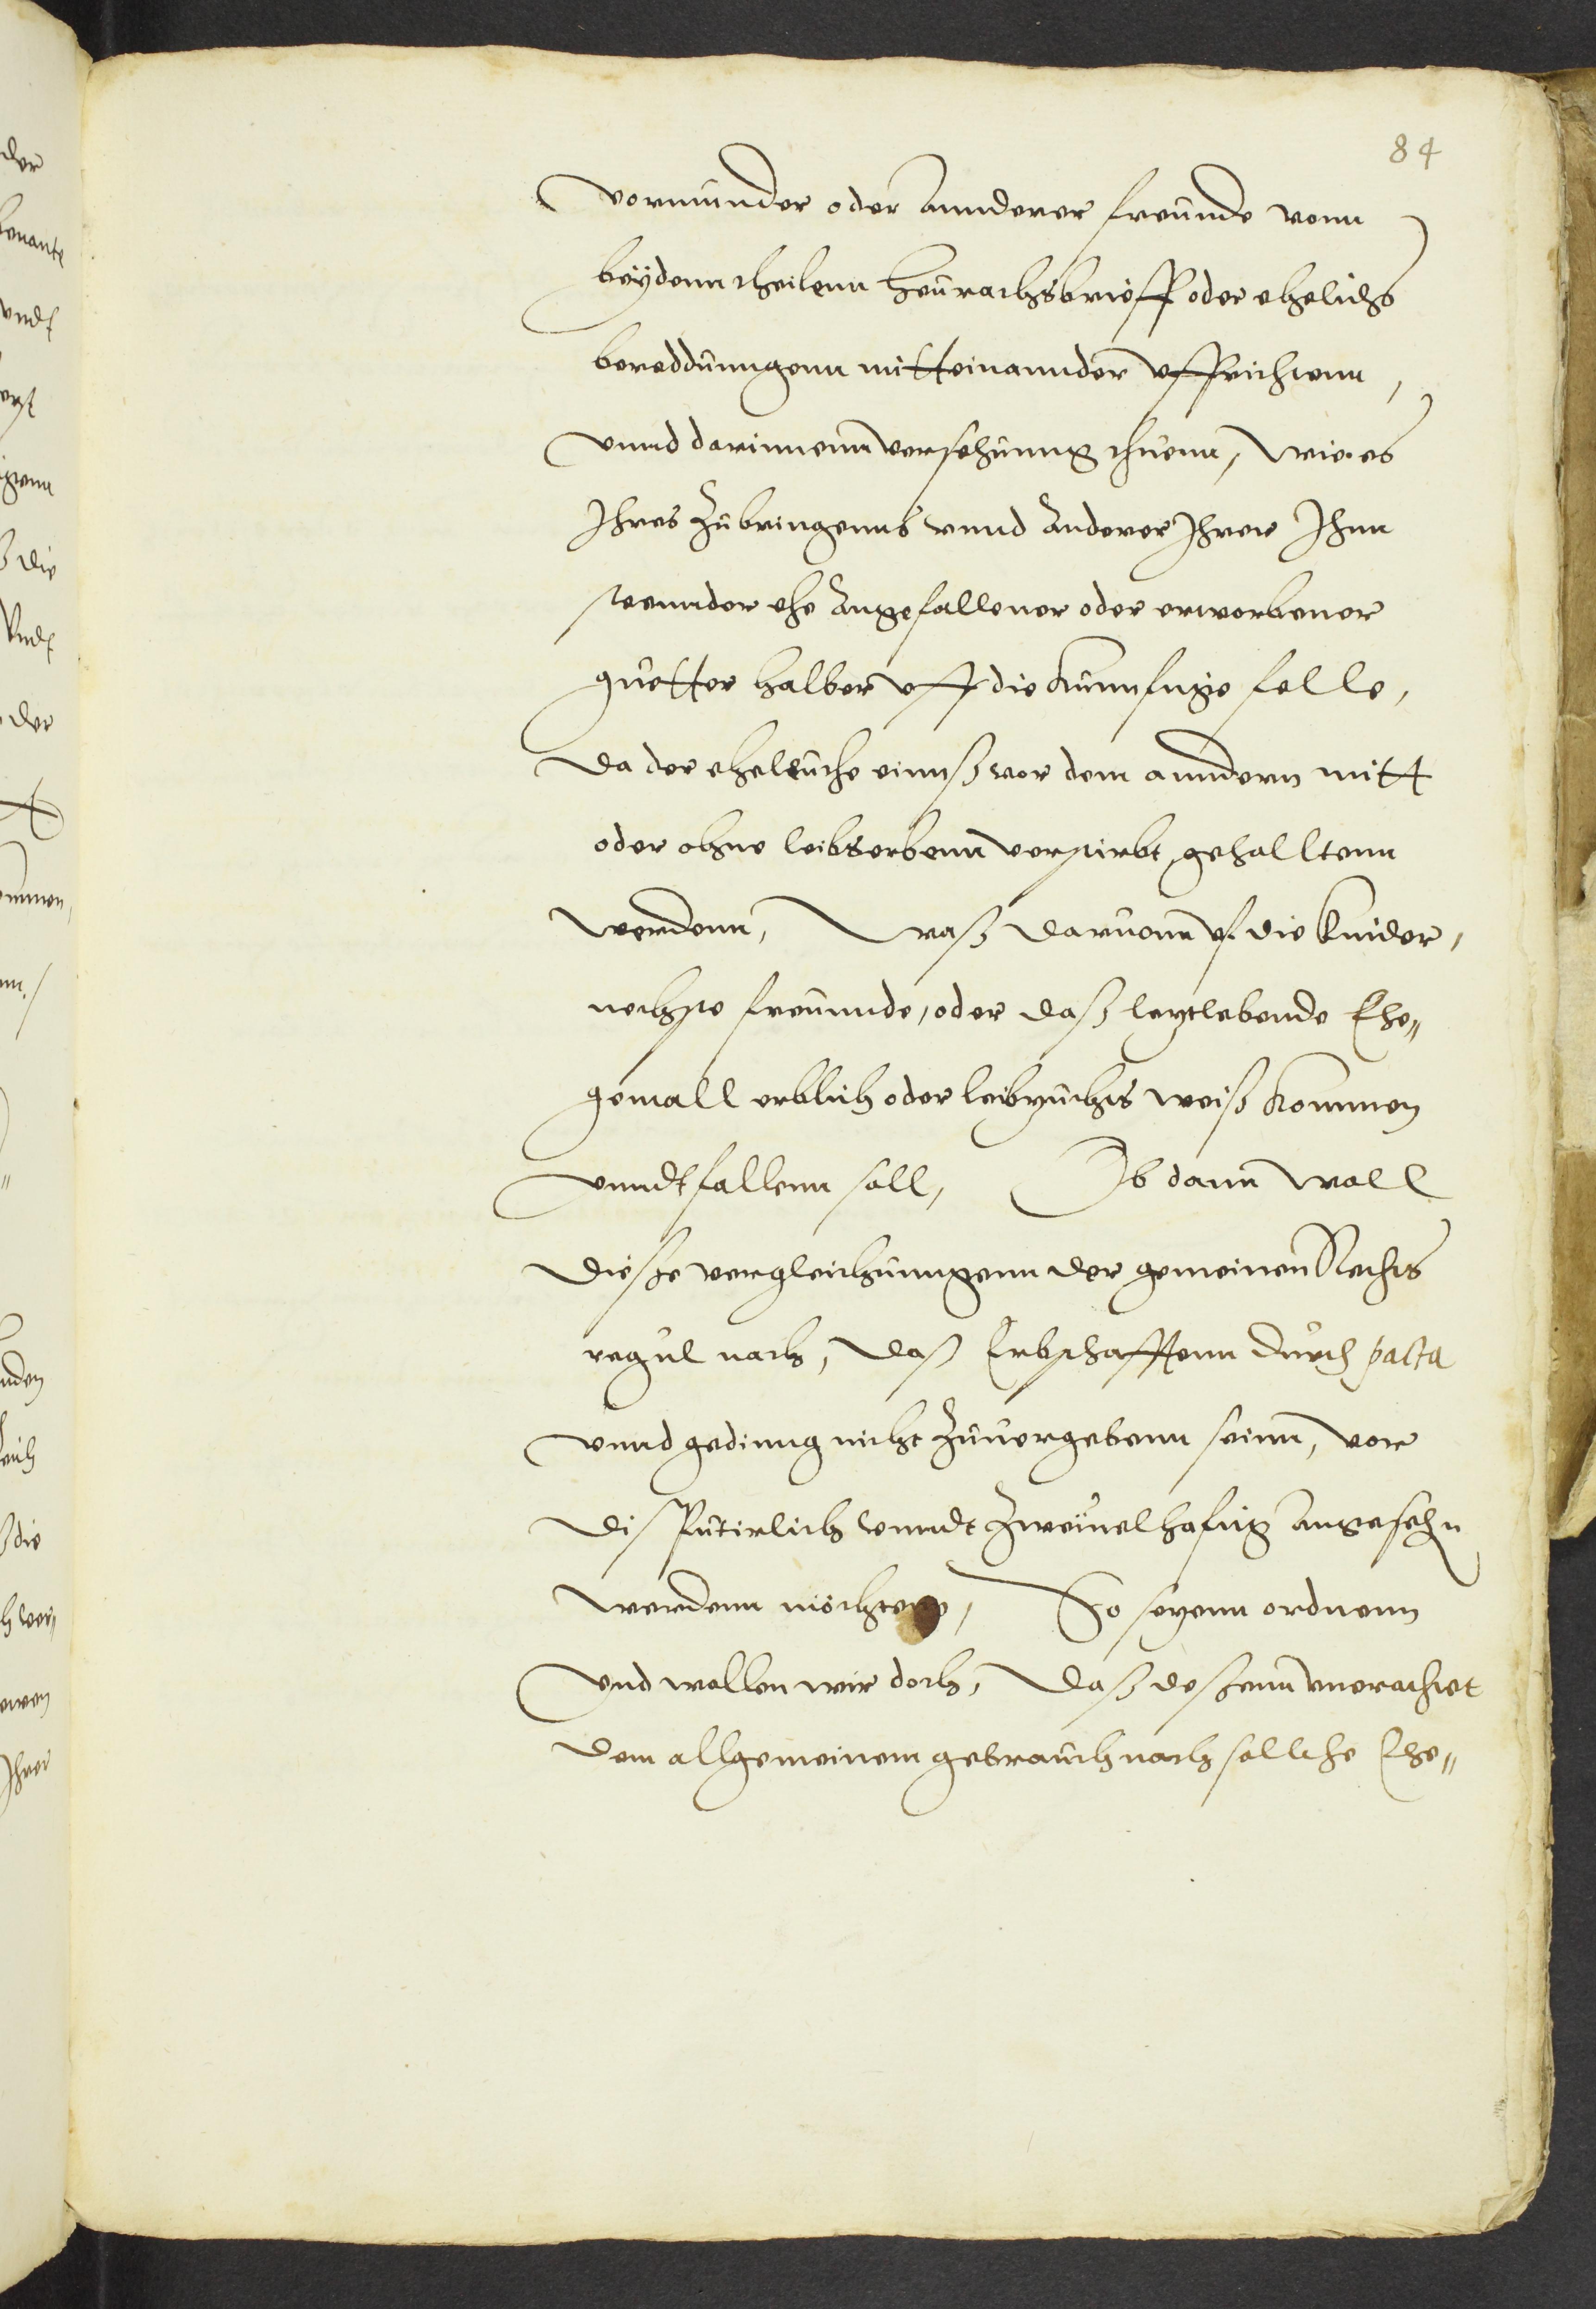 84
vormunder oder annderer freunde vonn
beydenn theilenn heurathsbrieff oder ehelichs
bereddunngenn mitteinannder uffrichtenn,
unnd darinnenn versehunng thuenn, wie es
Ihres zubringenns unnd anderer Ihrer Ihnn
steennder ehe angefallener oder erworbener
guetter halber uff die kunnfftige felle,
da der eheleuthe einns vor dem anndern mitt
oder ohne leibserbenn verstirbt, gehalltenn
werdenn, waß daruonn uf die kinder,
nechste freunnde, oder daß leztlebende Ehe„
gemall erblich oder leibzuchts weiß kommen
unndt fallenn soll, Ob dann woll
dieße vergleichunngenn der gemeinen Rechts
regul nach, daß Erbschafftenn durch pacta
unnd gedinng nicht zuuergebenn seinn, vor
disputirlich unndt zweiuelhafftig angesehn
werdenn möchtenn, So seyenn ordnenn
und wollen wir doch, daß deßenn unerachtet
dem allgemeinem gebrauch nach sollche Ehe„